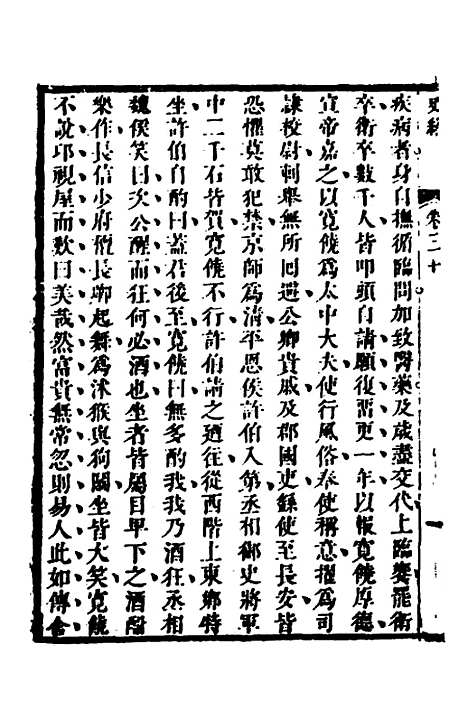 史緯 卷二十
疾病者身自撫循臨問加致醫藥及歲盡交代上臨饗罷衛
卒衛卒數千人皆叩頭自請願復畱更一年以報寬饒厚德
宣帝嘉之以寬饒爲太中大夫使行風俗奉使稱意擢爲司
隷校尉刺舉無所回避公卿貴戚及郡國吏繇使至長安皆
恐懼莫敢犯禁京師爲清平恩侯許伯入第丞相御史將軍
中二千石皆賀寬饒不行許伯請之廼往從西階上東鄉特
坐許伯自酌曰蓋君後至寬饒曰無多酌我我乃酒狂丞相
魏侯笑曰次公醒而狂何必酒也坐者皆屬目卑下之酒酣
樂作長信少府檀長卿起舞爲沐猴與狗鬬坐皆大笑寬饒
不說卬視屋而歎曰美哉然富貴無常忽則易人此如傳舍